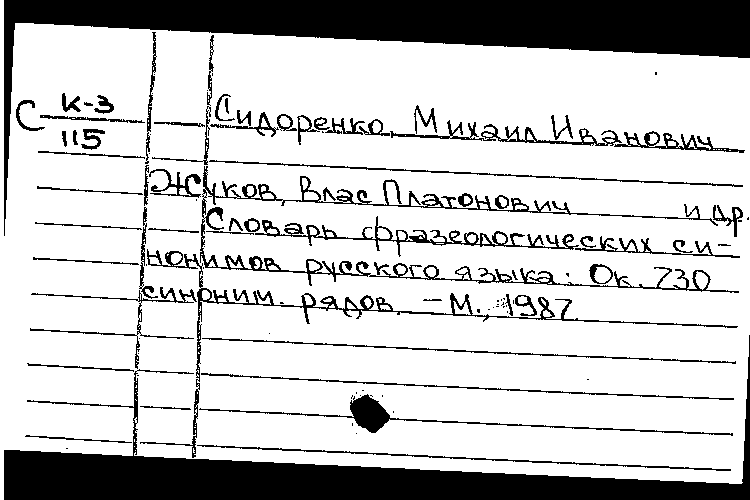 С К-3
115
Сидоренко, Михаил Иванович
Жуков, Влас Платонович и др.
Словарь фразеологических си-
нонимов русского языка: Ок. 730
синоним. рядов. – М., 1987